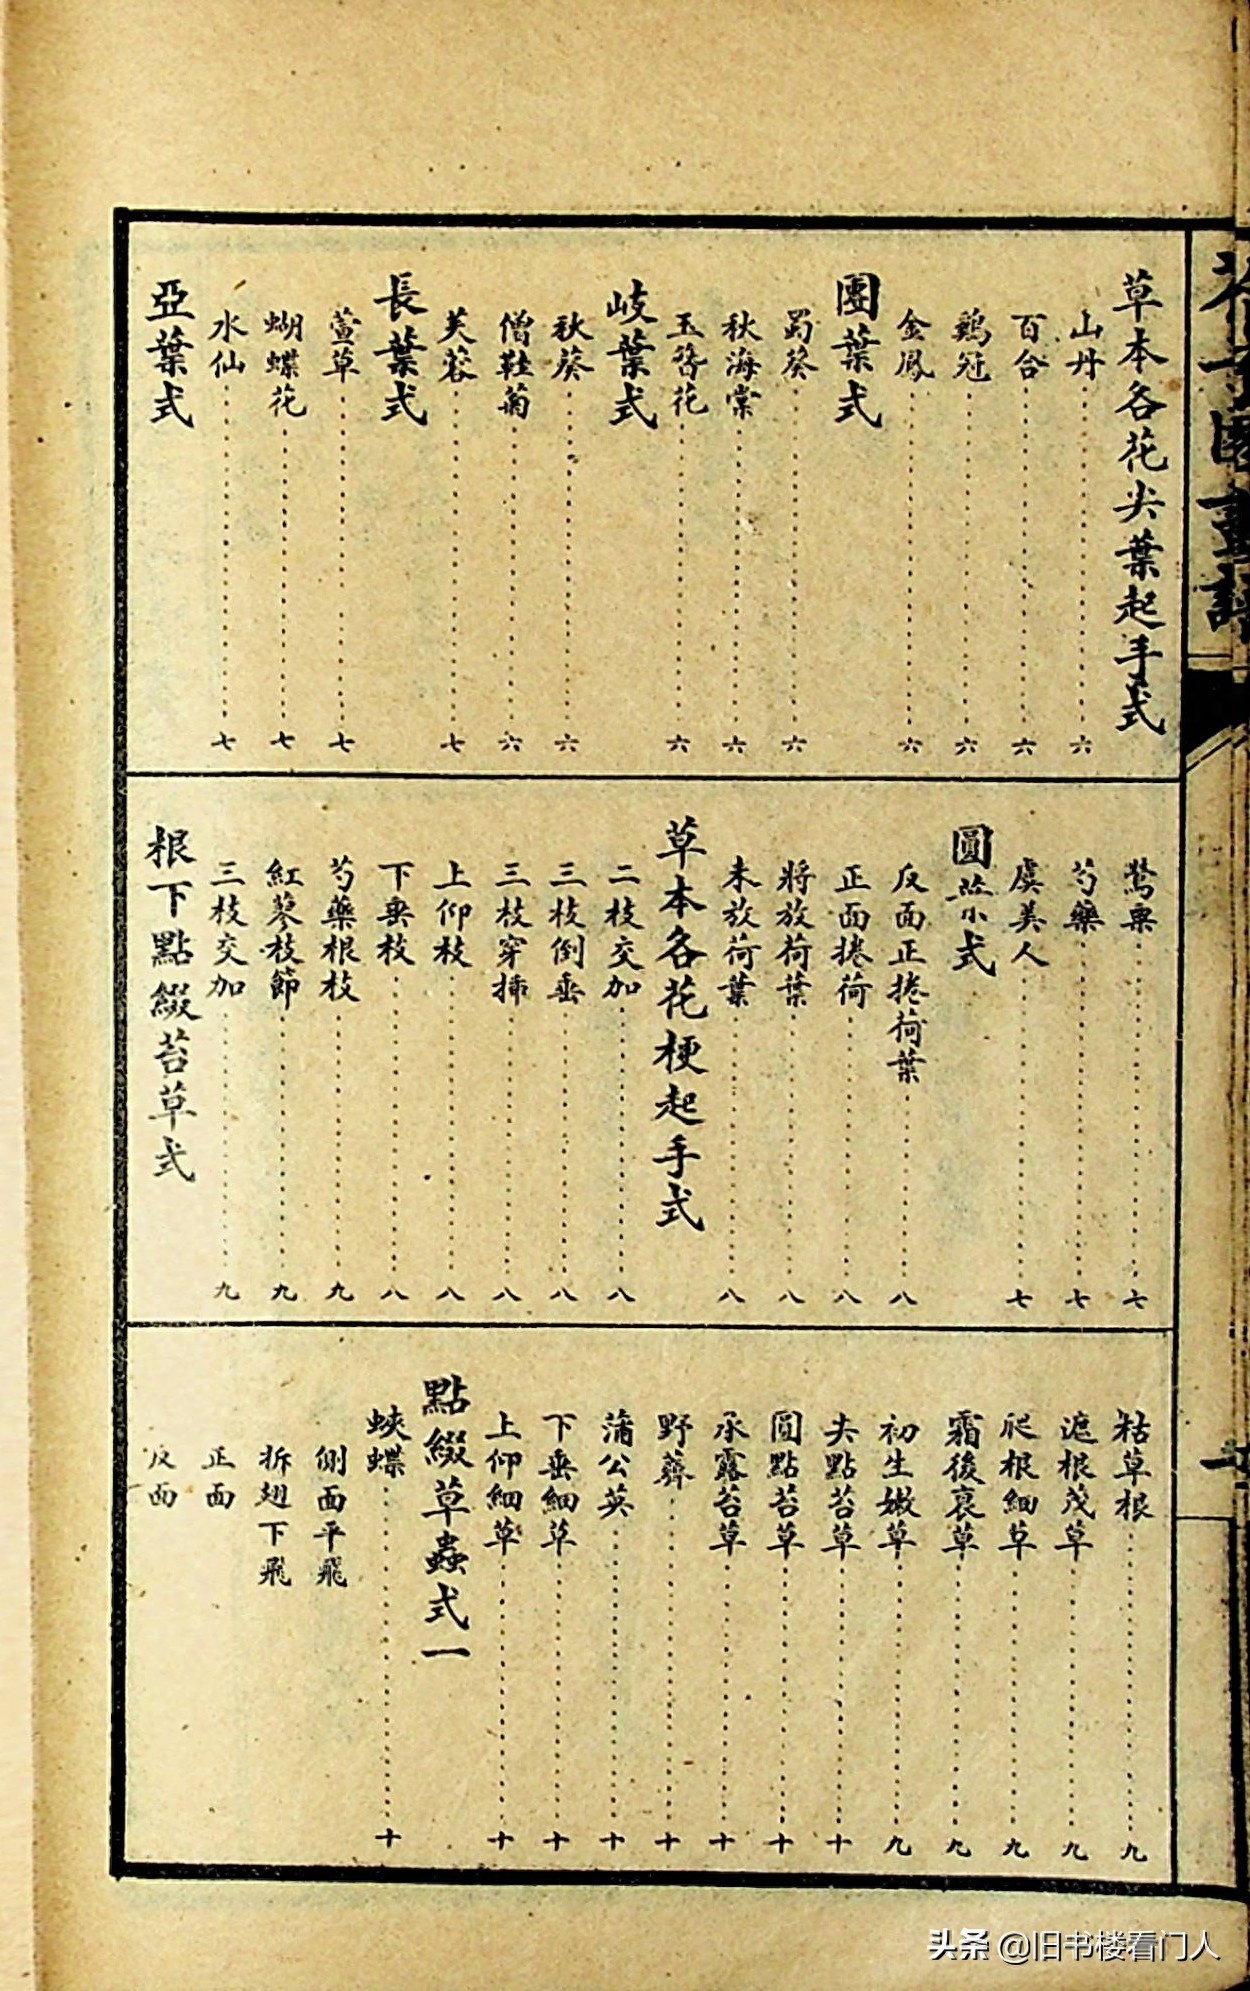 草本各花尖葉起手式
山丹 六
百合 六
鷄冠 六
金鳳 六
團葉式
蜀葵 六
秋海棠 六
玉簪花 六
岐葉式
秋葵 六
僧鞋菊 六
芙蓉 七
長葉式
萱草 七
蝴蝶花 七
水仙 七
亞葉式
鶯粟 七
芍藥 七
虞美人 七
圓葉式
反面正捲荷葉 八
正面捲荷 八
將放荷葉 八
未放荷葉 八
草本各花梗起手式
二枝交加 八
三枝倒垂 八
三枝穿揷 八
上仰枝 八
下垂枝 八
芍藥根枝 九
紅蓼枝節 九
三枝交加 九
根下點綴苔草式
枯草根 九
遮根茂草 九
爬根細草 九
霜後衰草 九
初生嫩草 九
尖點苔草 十
圓點苔草 十
承露苔草 十
野薺 十
蒲公英 十
下垂細草 十
上仰細草 十
點綴草蟲式一
蛺蝶 十
側面平飛
拆翅下飛
正面
反面
头条 @旧书楼看门人